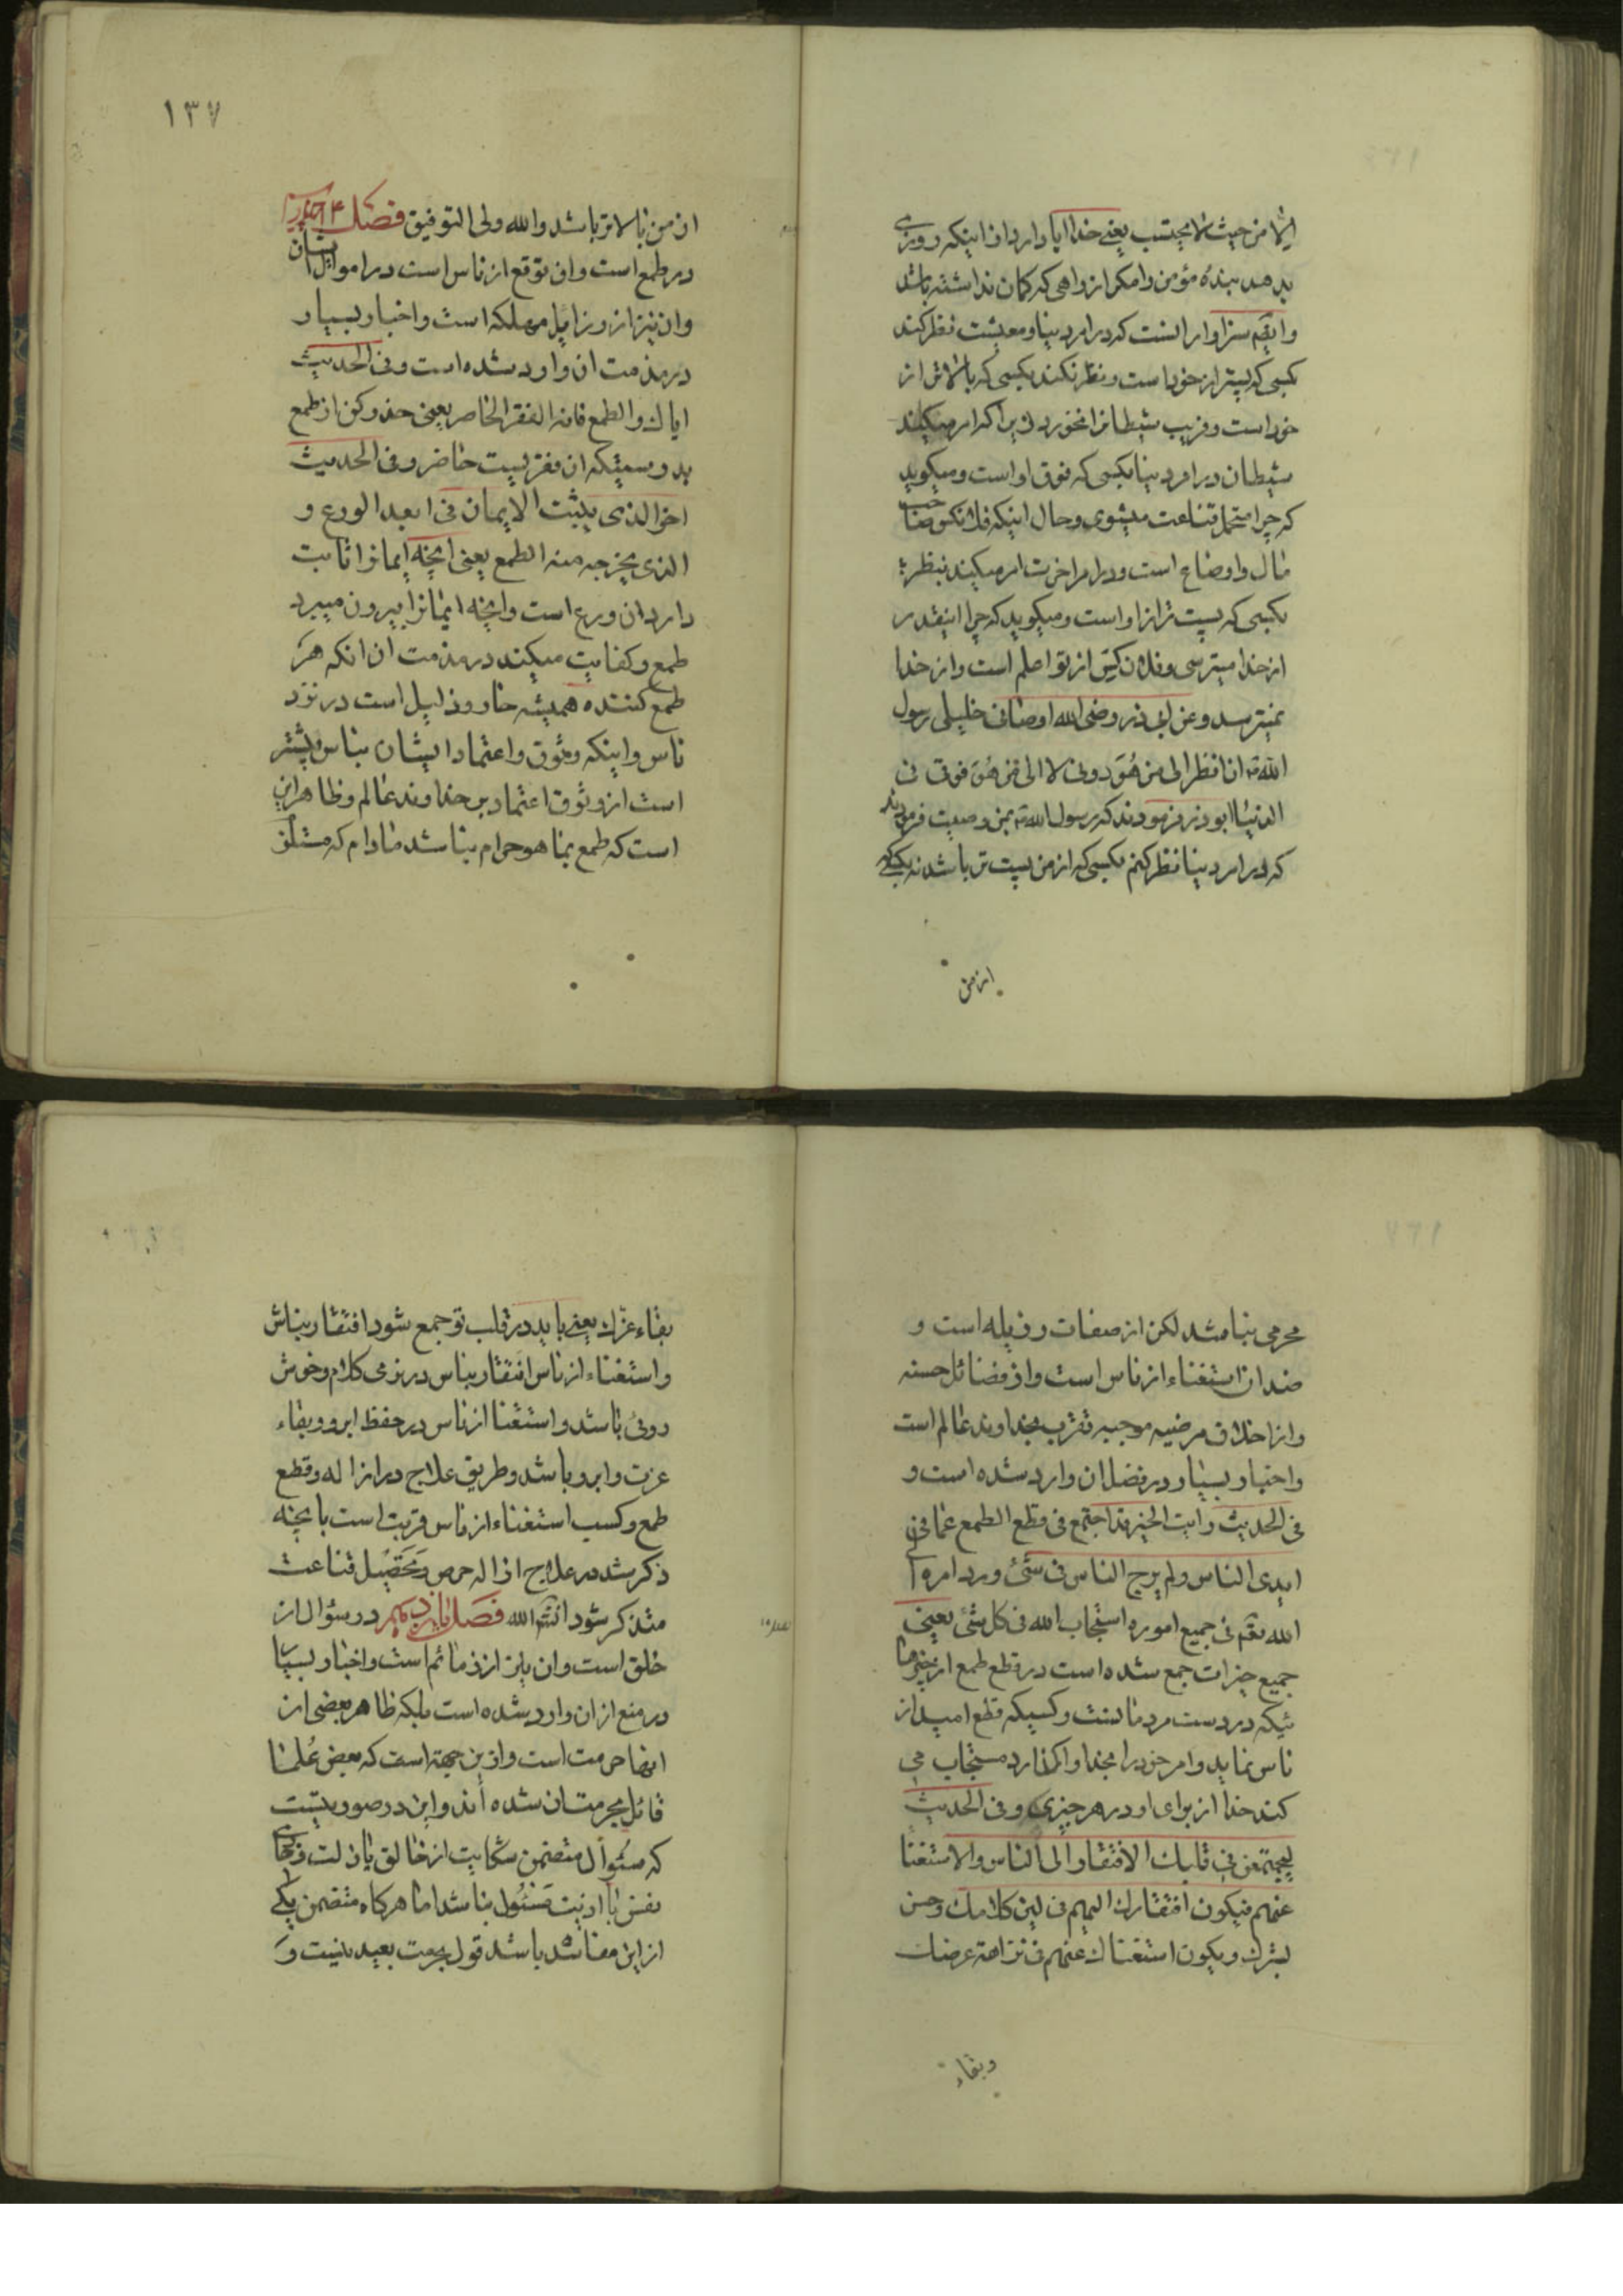 الا من حیث لا یحتسب یعنی خدا ابا دارد از اینکه روزی
بدهد بندهٔ مؤمن را مگر از راهی که کمان نداشته باشد
و ایضا سزاوار انست که در امر دنیا و معیشت نظر کند
بکسی که پستر از خود است و نظر نکند بکسی که بالاتر از
خود است و فریب شیطانرا نخورد زیرا که امر میکند
شیطان در امر دنیا بکسی که فوق او است و میکوید
که چرا متحمل قناعت میشوی و حال اینکه فلانکس صاحب
مال و اوضاع است و در امر اخرت امر میکند بنظر
بکسی که پست تر از او است و میکوید که چرا اینقدر
از خدا میترسی و فلان کس از تو اعلم است و از خدا
نمیترسد و عن ابی ذر رضی الله اوصانی خلیلی رسول
الله ص ان انظر الی من هو دونی لا الی من هو فوقی فی
الدنیا ابوذر فرمودند که رسول الله ص بمن وصیت فرمودند
که در امر دنیا نظر کنم بکسی که از من پست تر باشد نه بکسی که
از من
۱۳۷
از من بالاتر باشد و الله ولی التوفیق فصل ۱۴
در طمع است و ان توقع از ناس است در اموال ایشان
و ان نیز از رزایل مهلکه است و اخبار بسیار
در مذمت ان وارد شده است و فی الحدیث
ایاك و الطمع فانه الفقر الحاضر یعنی حذر کن از طمع
بدرستیکه ان فقریست حاضر و فی الحدیث
اخر الذی یثبت الایمان فی العبد الورع و
الذی یخرجه منه الطمع یعنی انچه ایمانرا ثابت
دارد ان ورع است و انچه ایمانرا بیرون میبرد
طمع و کفایت میکند در مذمت ان انکه هر
طمع کننده همیشه خار و ذلیل است در نزد
ناس و اینکه وثوق و اعتماد ایشان بناس بیشتر
است از وثوق اعتماد بر خداوند عالم و ظاهر این
است که طمع بما هو حرام نباشد مادام که مستلزم
محرمی نباشد لکن از صفات رذیله است و
ضد ان استغناء از ناس است و از فضائل حسنه
و از اخلاق مرضیه موجبه تقرب بخداوند عالم است
و اخبار بسیار در فضل ان وارد شده است و
فی الحدیث رایت الخیر قد اجتمع فی قطع الطمع عما فی
ایدی الناس و لم یرج الناس فی شئ و رد امره الی
الله تعم فی جمیع اموره استجاب الله فی کل شئ یعنی
جمیع خیرات جمع شده است در قطع طمع از چیزها
ئیکه در دست مردمانست و کسیکه قطع امید از
ناس نماید و امر خود را بخدا واکذارد مستجاب می
کند خدا از برای او در هر چیزی و فی الحدیث
لیجتمعن فی قلبك الافتقار الی الناس و الاستغنا
عنهم فیکون افتقارك الیهم فی لین کلامك و حسن
بشرك و یکون استغناك عنهم فی نزاهة عرضك
و بقاء
بقاء عزك یعنی باید در قلب تو جمع شود افتقار بناس
و استغناء از ناس افتقار بناس در نرمی کلام و خوش
روئی باشد و استغنا از ناس در حفظ ابرو و بقاء
عزت و ابرو باشد و طریق علاج در ازاله و قطع
طمع و کسب استغناء از ناس قریب است بانچه
ذکر شد در علاج ازاله حرص و تحصیل قناعت
متذکر شود انشم الله فصل پانزدهم در سؤال از
خلق است و ان نیز از ذمائم است و اخبار بسیار
در منع از ان وارد شده است بلکه ظاهر بعضی از
انها حرمت است و از این جهة است که بعض علما
قائل بحرمت ان شده اند و این در صورتیست
که سئوال متضمن شکایت از خالق یا ذلت
نفس یا اذیت مسئول باشد اما هرکاه متضمن یکی
از این مفاسد باشد قول بحرمت بعید نیست و